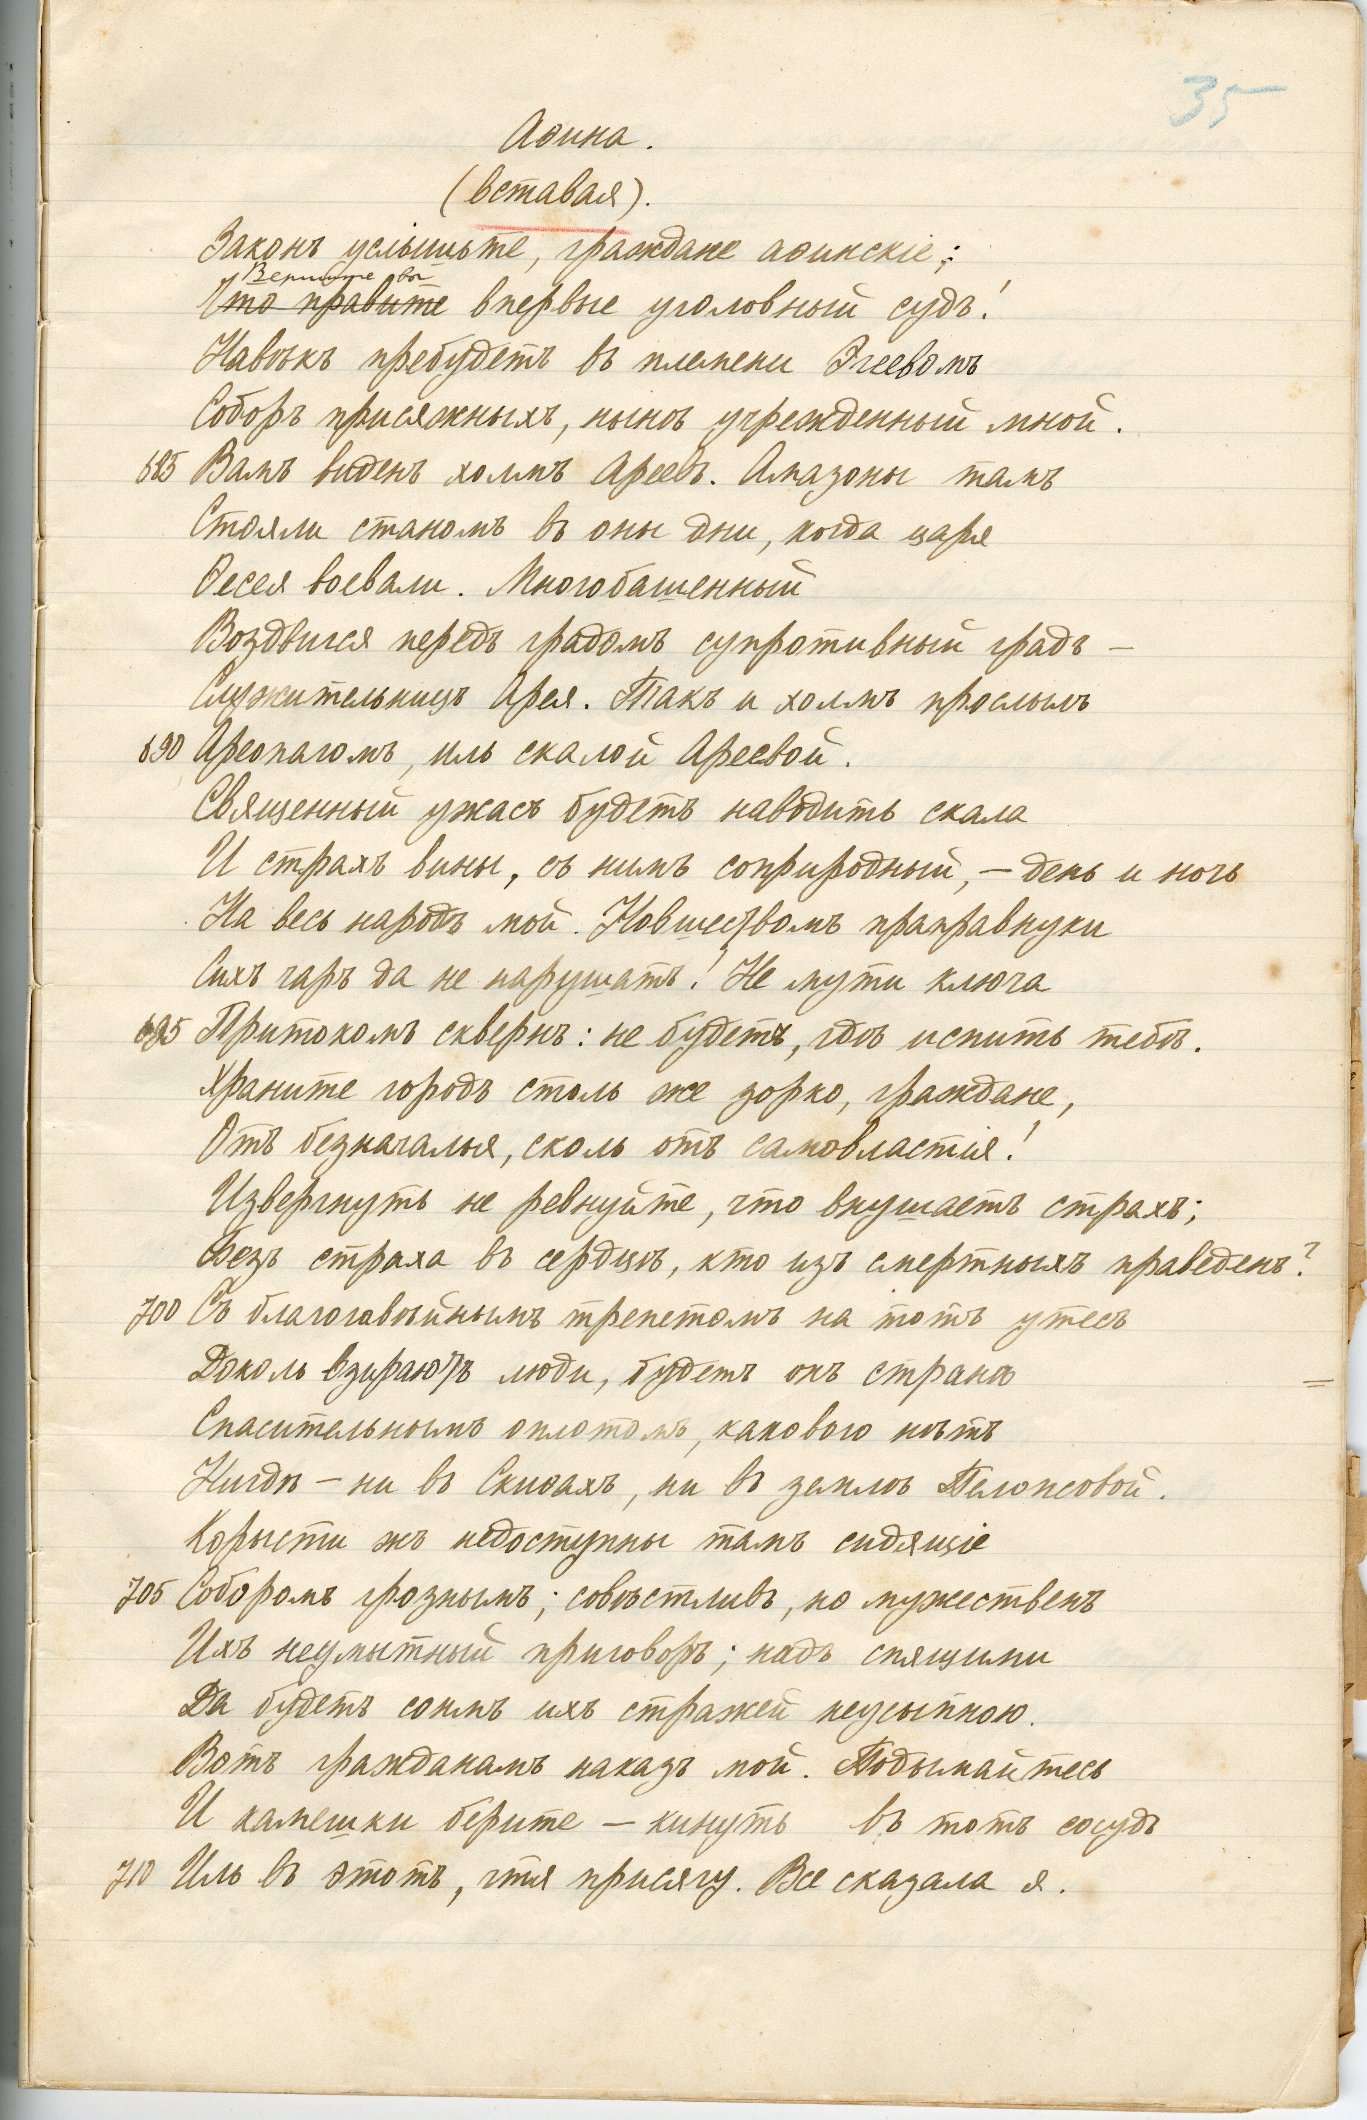 35
Аѳина.
(вставая).
Законъ услышьте, граждане аѳинскіе;
Вершите вы
Что правите впервые уголовный судъ!
Навѣкъ пребудетъ въ племени Эгеевомъ
Соборъ присяжныхъ, нынѣ учрежденный мной.
685 Вамъ виденъ холмъ Ареевъ. Амазоны тамъ
Стояли станомъ въ оны дни, когда царя
Ѳесея воевали. Многобашенный
Воздвигся передъ градомъ супротивный градъ —
Служительницъ Арея. Такъ и холмъ прослылъ
690 Ареопагомъ, иль скалой Ареевой.
Священный ужасъ будетъ наводить скала
И страхъ вины, съ нимъ соприродный, — день и ночь
На весь народъ мой. Новшествомъ праправнуки
Сихъ чаръ да не нарушатъ! Не мути ключа
695 Притокомъ сквернъ: не будетъ, гдѣ испить тебѣ.
Храните городъ столь же зорко, граждане,
Отъ безначалья, сколь отъ самовластія!
Извергнуть не ревнуйте, что внушаетъ страхъ;
Безъ страха въ сердцѣ, кто изъ смертныхъ праведенъ?
700 Съ благоговѣйнымъ трепетомъ на тотъ утесъ
Доколь взираютъ люди, будетъ онъ странѣ
Спасительнымъ оплотомъ, какового нѣтъ
Нигдѣ — ни въ Скиѳахъ, ни въ землѣ Пелопсовой.
Корысти жъ недоступны тамъ сидящіе
705 Соборомъ грознымъ; совѣстливъ, но мужественъ
Ихъ неумытный приговоръ; надъ спящими
Да будетъ сонмъ ихъ стражей неусыпною.
Вотъ гражданамъ наказъ мой. Подымайтесь
И камешки берите — кинуть въ тотъ сосудъ
710 Иль въ этотъ, чтя присягу. Все сказала я.